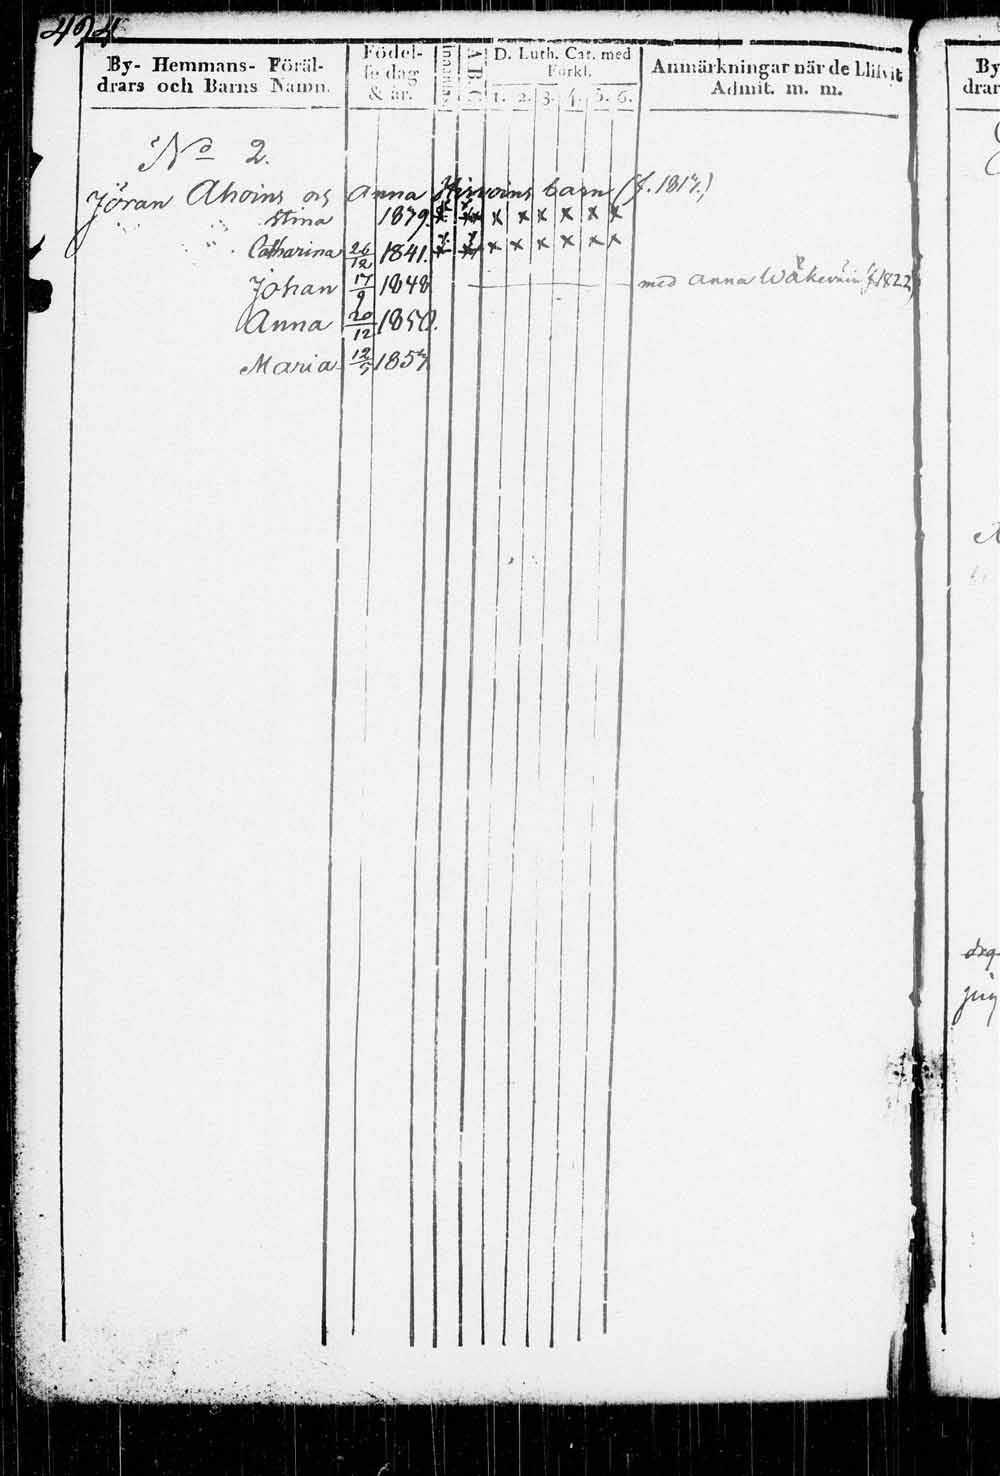 424
By- Hemmans- Föräl-
drars och Barns Namn.
Födel-
se dag
& år.
Innanläs.
A B C.
D. Luth. Cat. med
Förkl.
1. 2. 3. 4. 5. 6.
Anmärkningar när de blifvit
Admit. m. m.
No 2.
Jöran Ahoins och Anna Hirvoins barn (f. 1817.)
Stina 1839. x x x x x x x x
Catharina 26/12 1841. x x x x x x x x
Johan 17/9 1848 med Anna (f 1822)
Anna 20/12 1850.
Maria 12/5 1857
By
drar